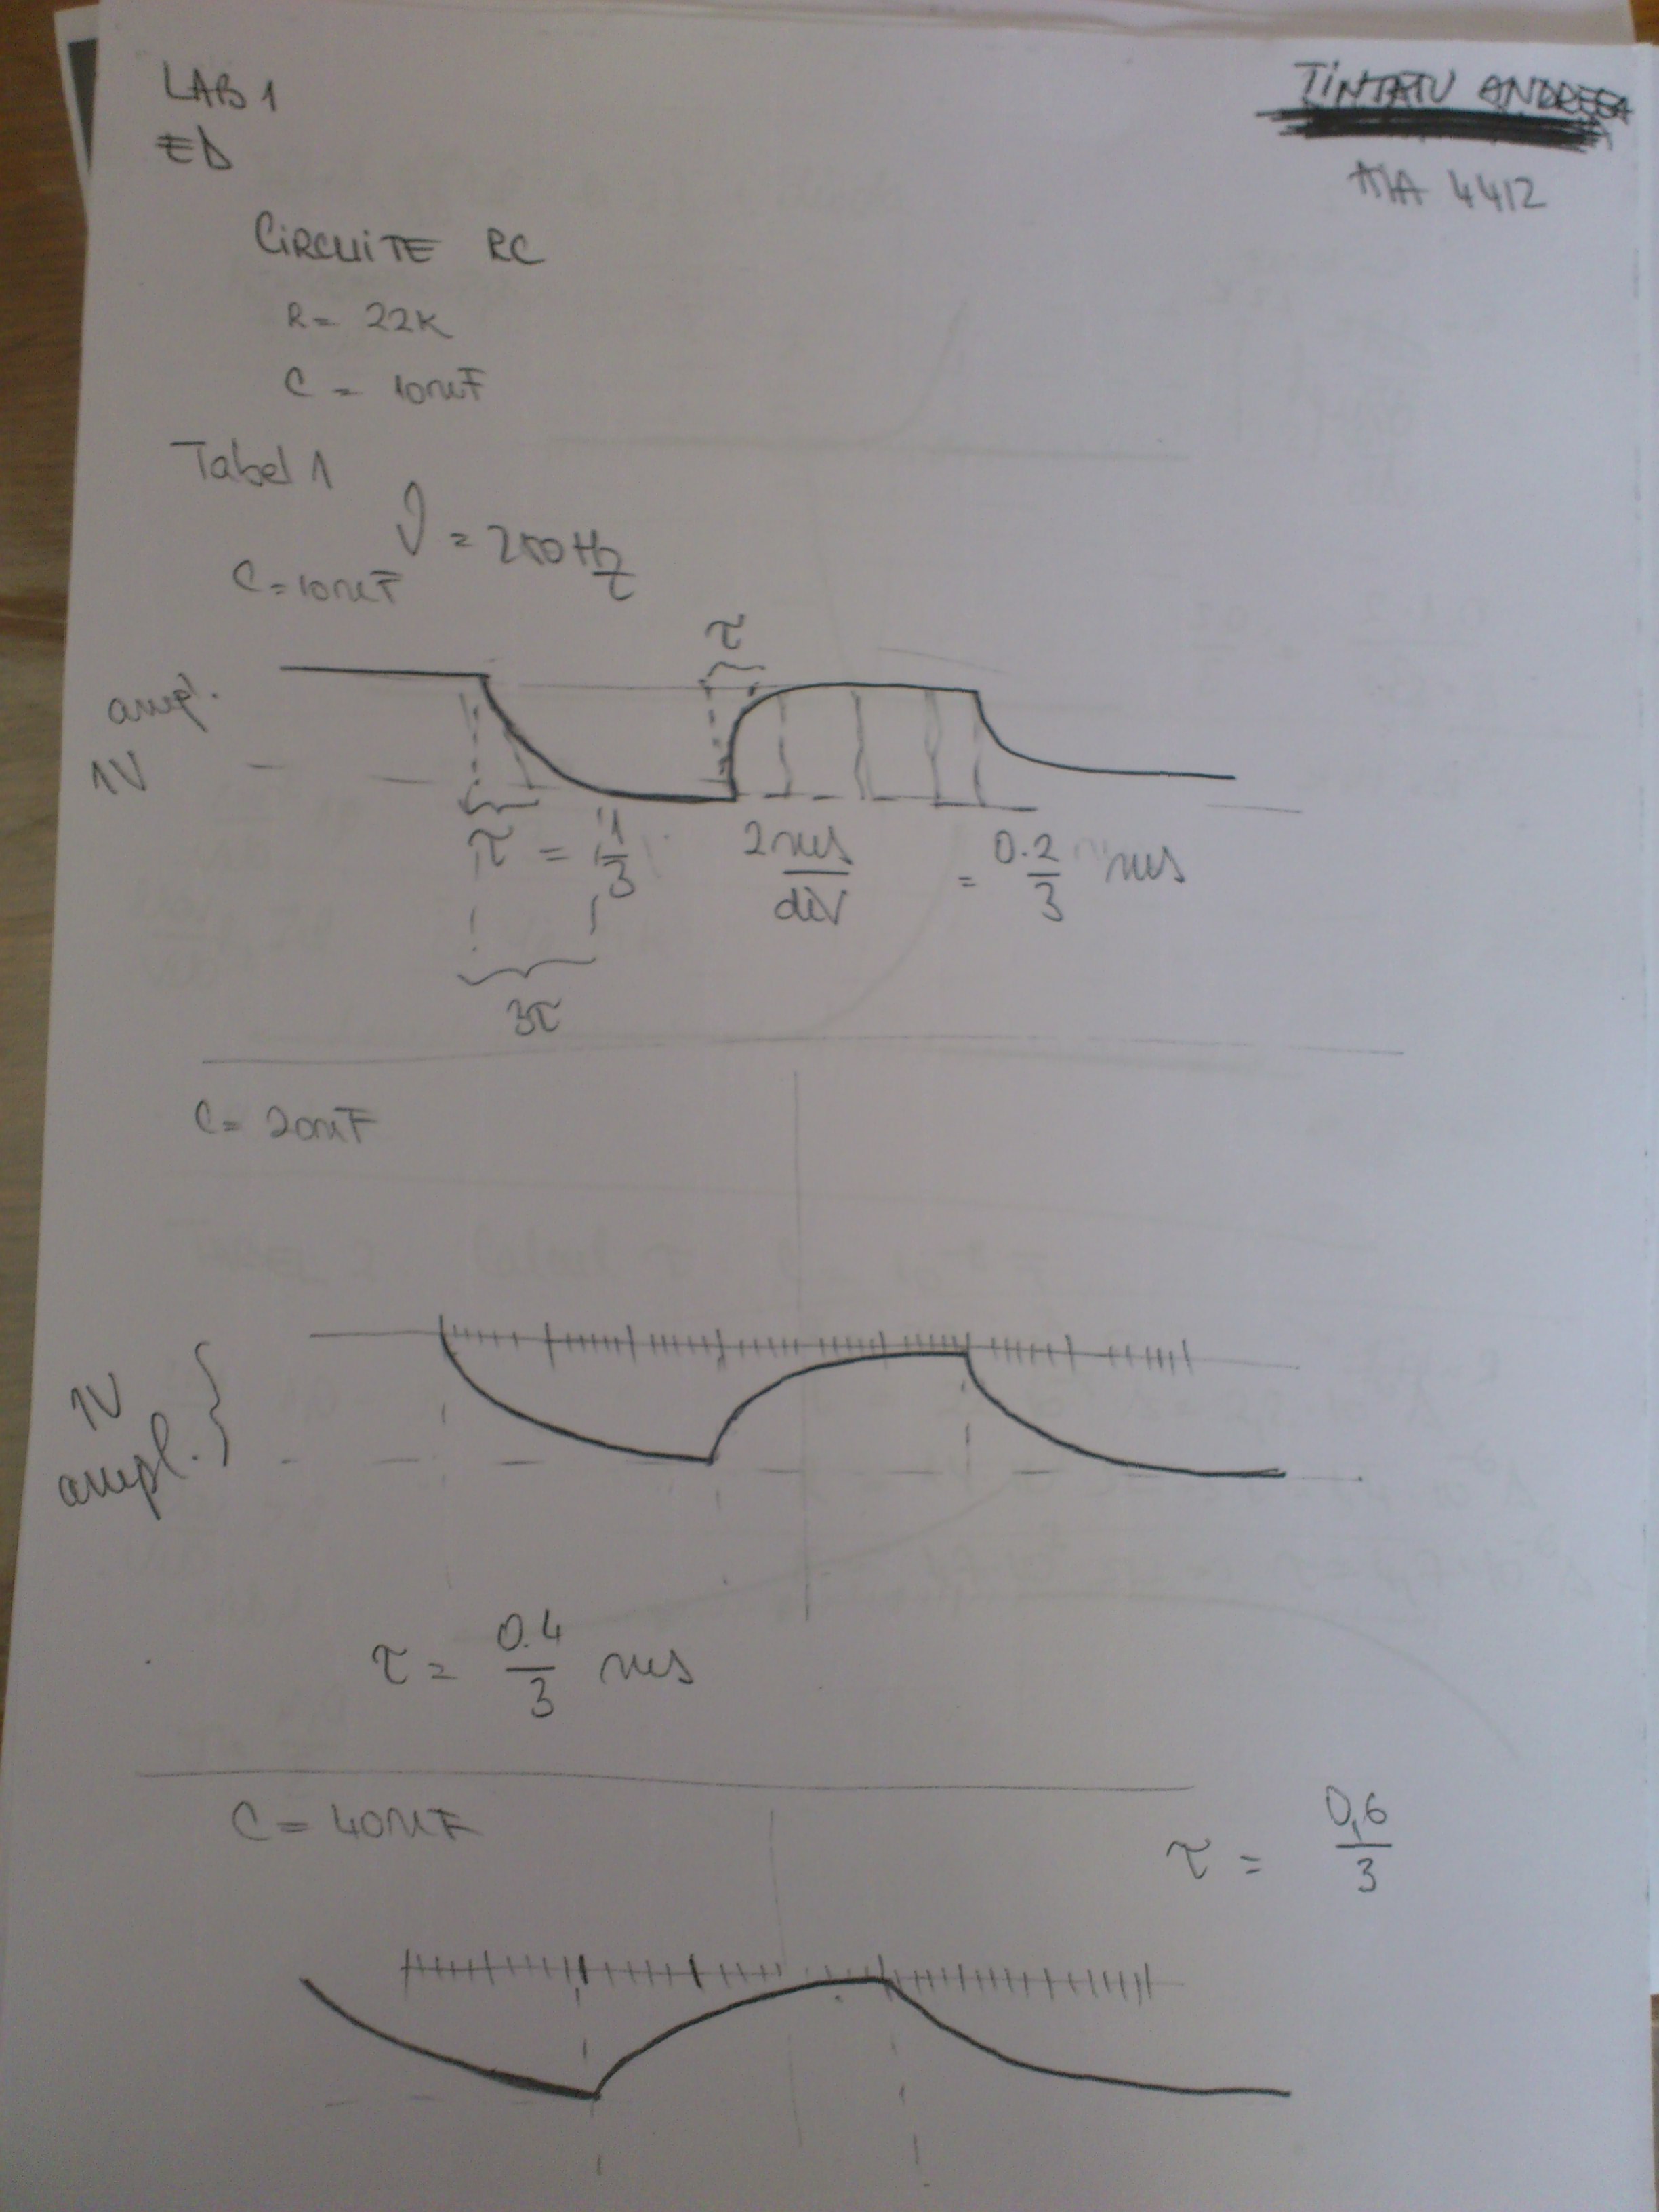 LAB 1
ED
TINTATU ANDREEA
4412
CIRCUITE RC
R = 22K
C = 10nF
Tabel 1
ν = 250 Hz
C = 10nF
τ
ampl.
1V
τ = 1/3 2ms/div = 0.2/3 ms
3τ
C = 20nF
1V
ampl.
τ = 0.4/3 ms
C = 40nF
τ = 0,6/3